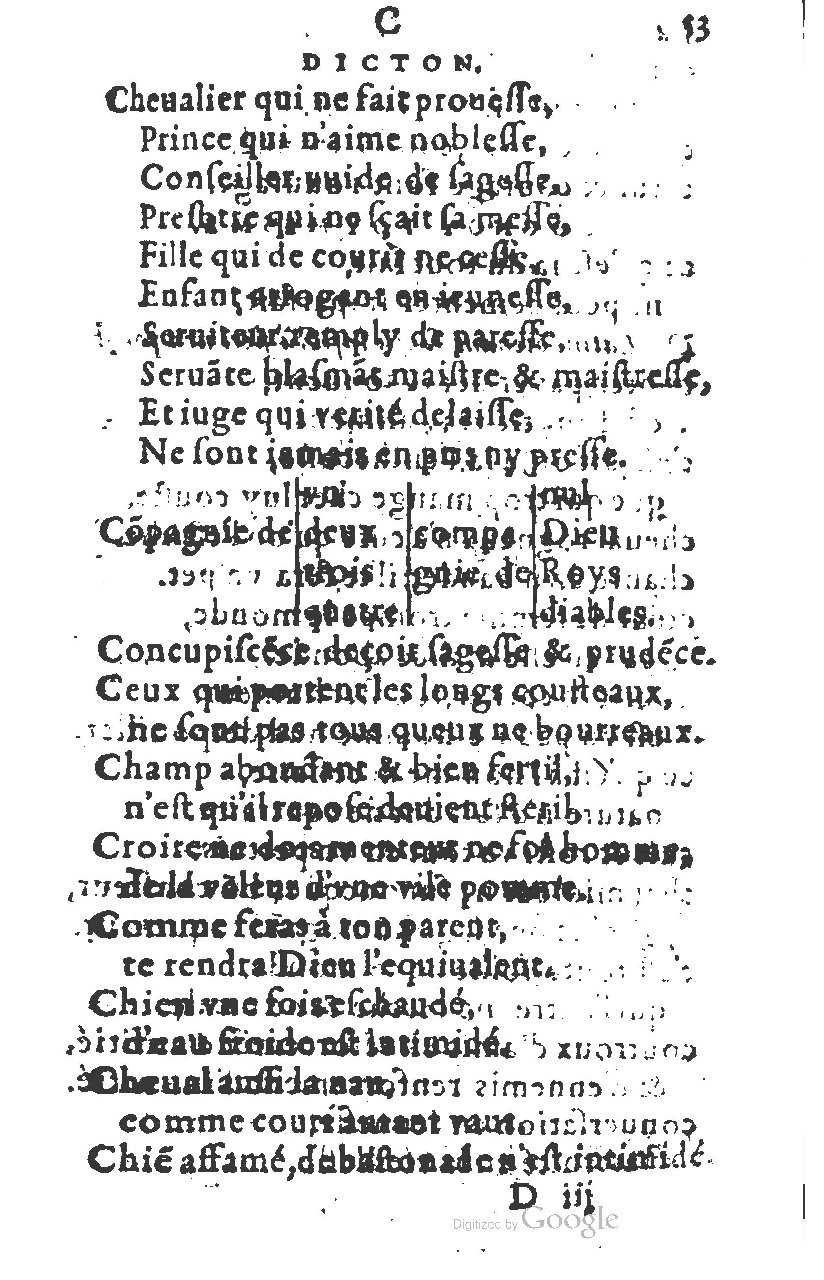 C
53
DICTON.
Cheualier qui ne fait prouësse,
Prince qui n'aime noblesse,
Conseiller vuide de sagesse,
Prestre qui ne sçait sa messe,
Fille qui de courir ne cesse,
Enfant arrogant en ieunesse,
Seruiteur remply de paresse,
Seruāte blasmāt maistre & maistresse,
Et iuge qui verité delaisse,
Ne sont iamais en prys ny presse.
vn nul
Cōpagnie de deux compa Dieu
trois gnie de Roys
quatre diables.
Concupiscēce deçoit sagesse & prudēce.
Ceux qui portent les longs cousteaux,
ne sont pas tous queux ne bourreaux.
Champ abondant & bien fertil,
n'est qu'il repose deuient steril.
Croire ne dois menteur ne homme,
de la valeur d'vne vile pomme.
Comme feras à ton parent,
te rendra Dieu l'equiualent.
Chien vne fois eschaudé,
d'eau froide est intimidé.
Cheual
comme courr vaut
Chiē affamé, de bastonade n'est intimidé.
D iij
Digitized by Google